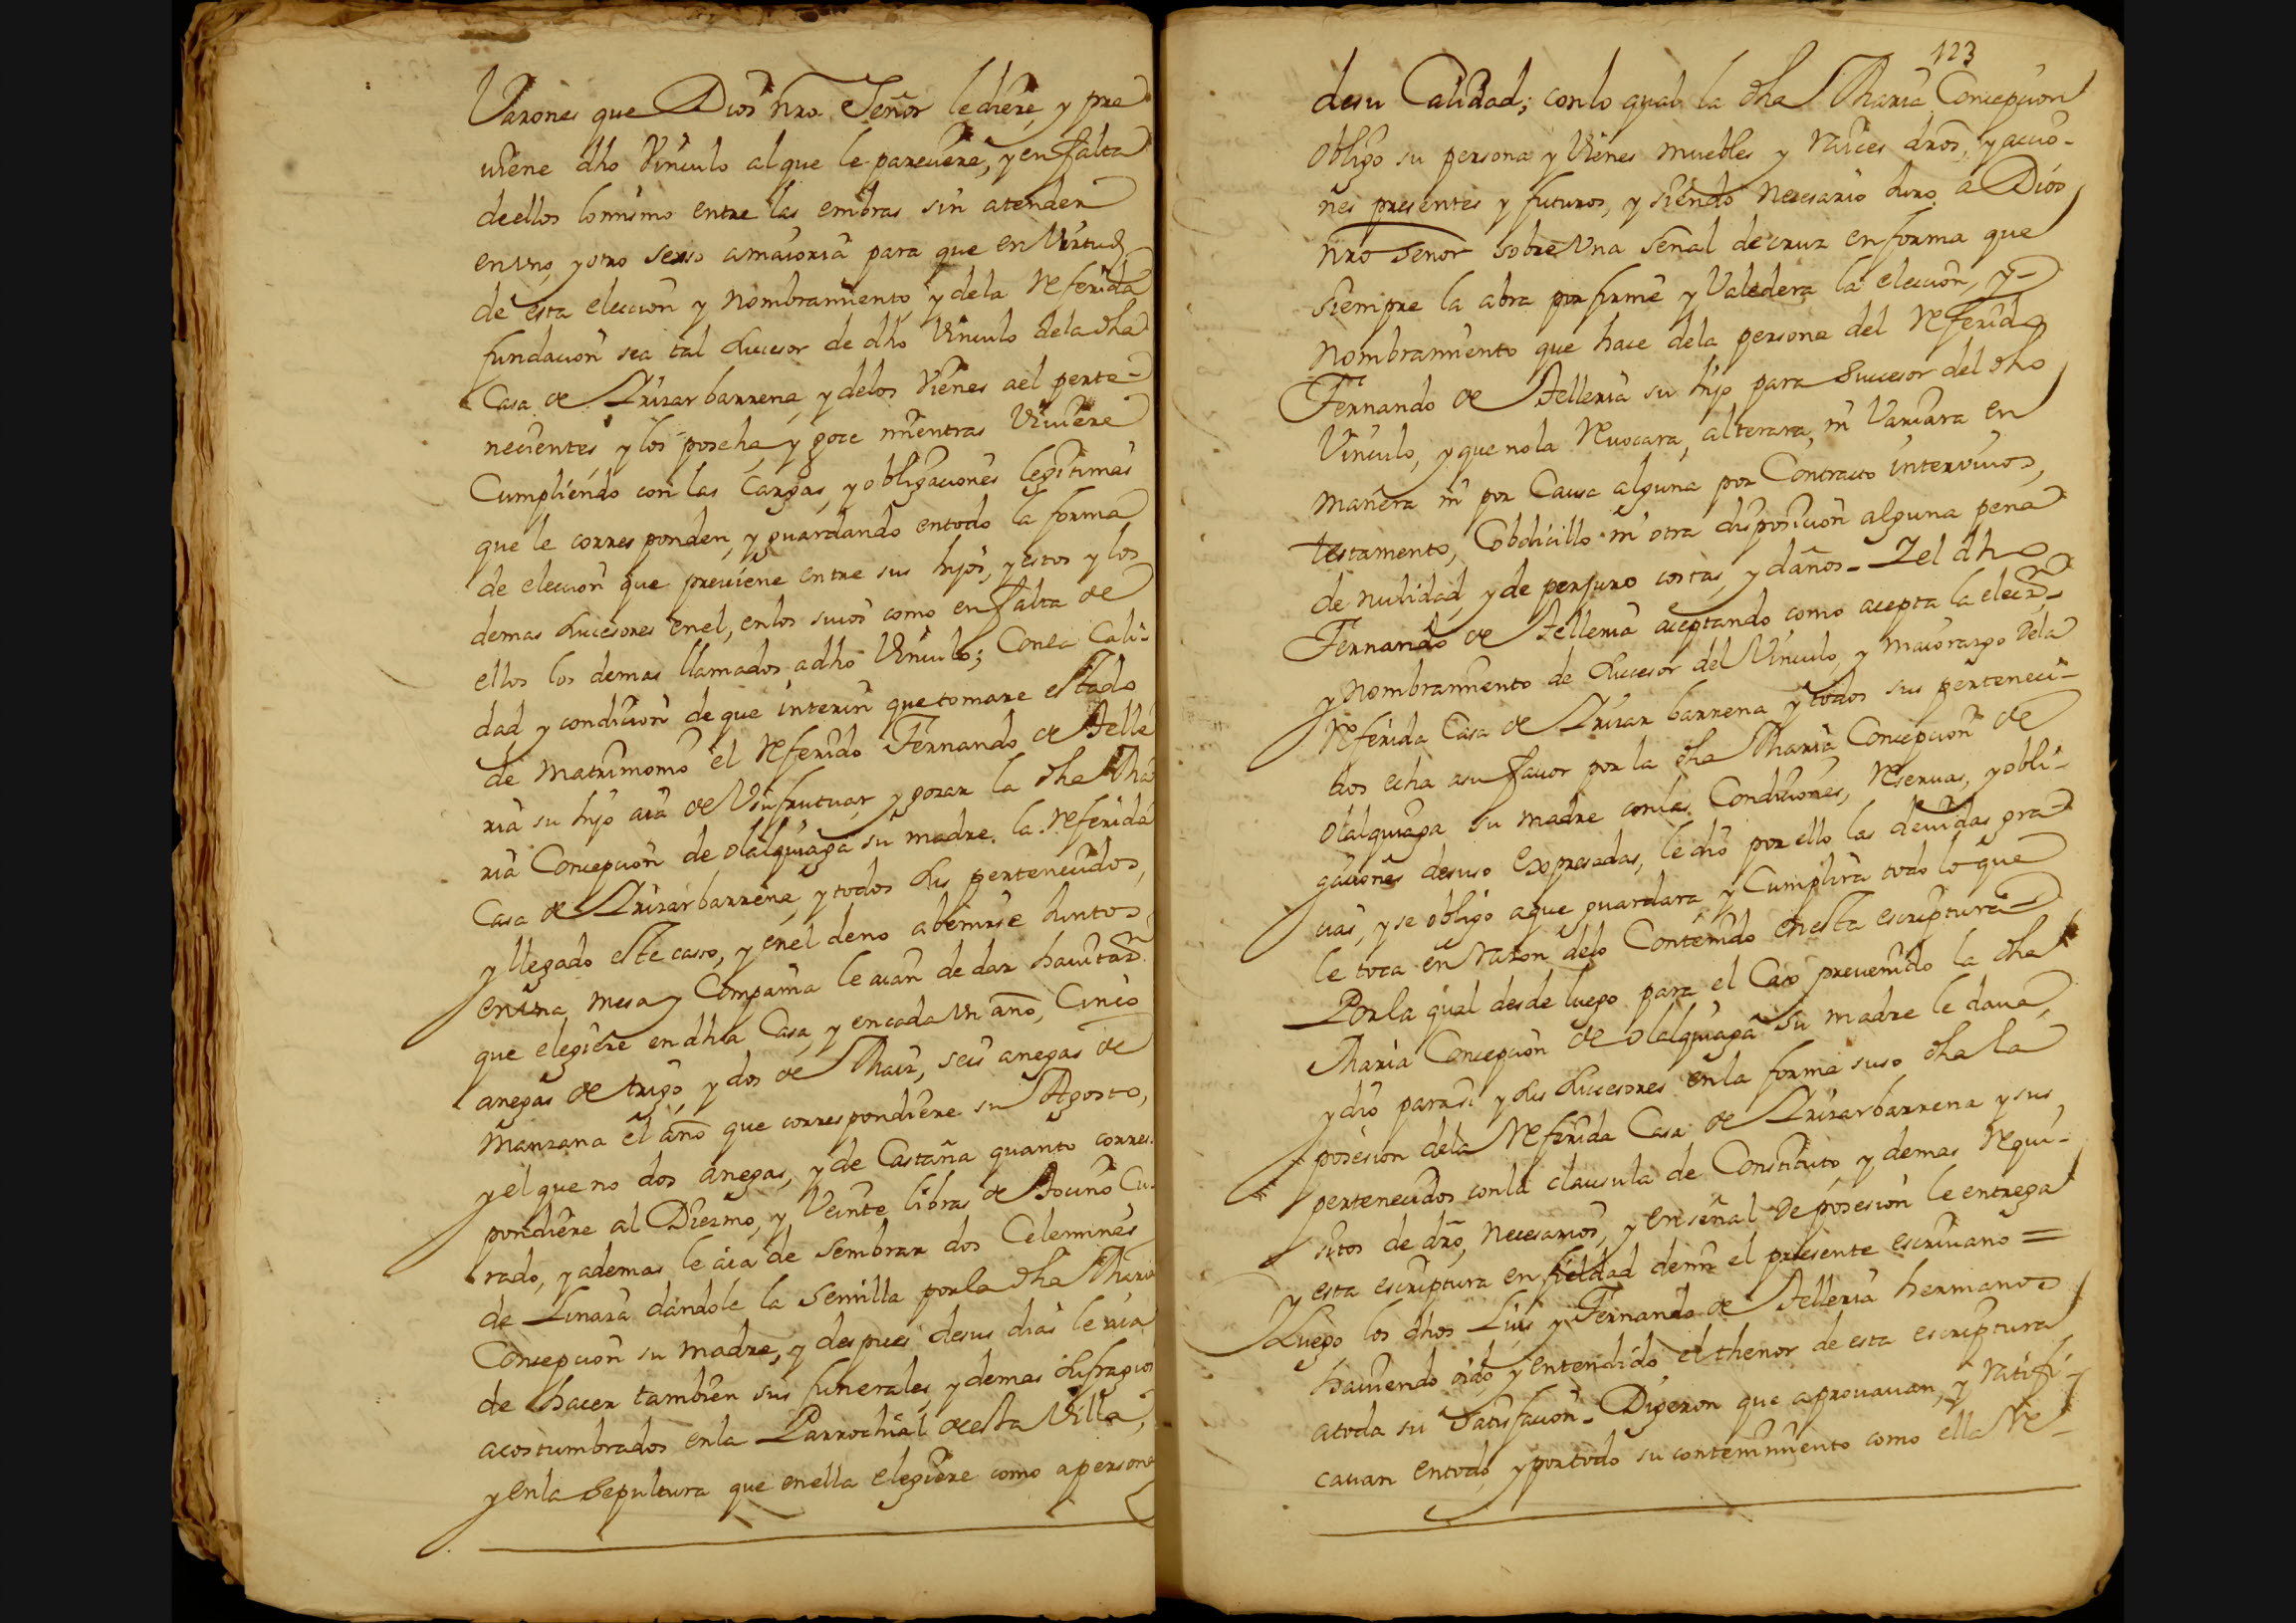 Varones que Dios nro Señor le diere, y pre
uiene dho Vinculo al que le pareciere, y en falta
de ellos lo mismo entre las embras sin atender
en uno, y otro sexso a maioria para que en Virtud
de esta eleccion y nombramiento, y dela referida
fundacion sea tal subcesor de dho Vinculo dela dha
Casa de Lrizarbarrena, y delos Vienes a el perte-
necientes, y los poseha, y goce mientras Viuiere
Cumpliendo con las Cargas, y obligaciones legitimas
que le corresponden, y guardando en todo la forma
de eleccion que preuiene entre sus hijos, y estos y los
demas sucesores en el, en los suios como en falta de
ellos los demas llamados a dho Vinculo; Con la Cali-
dad y condicion de que interin que tomare estado
de Matrimonio el referido Fernando de Telle
ria su hijo aia de Vsufrutuar, y gozar la dha Ma
ria Concepcion de olalquiaga su madre la referida
Casa de Lrizarbarrena, y todos sus pertenecidos,
y llegado este casso, y en el de no abenirse Juntos
en una mesa y Compañia le aian de dar hauitaon
que elegiere en dha Casa, y en cada Vn año, Cinco
anegas de trigo, y dos de Maiz, seis anegas de
Manzana el año que correspondiere su Agosto,
y el que no dos anegas, y de Castaña quanto corres-
pondiere al Diezmo, y Veinte libras de tocino Cu-
rado, y ademas le aia de sembrar dos Celemines
de Linaza dandole la Semilla por la dha Maria
Concepcion su madre, y despues de sus dias le aia
de hacer tambien sus funerales, y demas sufragios
acostumbrados en la Parrochial de esta Villa,
y en la sepultura que en ella elegiere como a persona
123
de su Calidad; con lo qual la dha Maria Concepcion
obligo su persona y Vienes muebles y raices dros, y accio-
nes presentes y futuros, y siendo necesario Juro a Dios
nro Señor sobre Una Señal de cruz en forma que
siempre la abra por firme y Valedera la eleccion, y
nombramiento que hace dela persona del referido
Fernando de Telleria su hijo para Succesor del dho
Vinculo, y que no la reuocara, alterara, ni Variara en
manera ni por Causa alguna por Contracto interviuos,
testamento, Cobdicillo ni otra disposicion alguna pena
de nulidad, y de perjuro costas, y daños - Y el dho
Fernando de Telleria aceptando como acepta la eleccon,
y nombramiento de sucesor del Vinculo, y maiorazgo dela
referida Casa de Lrizar barrena y todos sus perteneci-
dos echa a su fauor por la dha Maria Concepcion de
Olalquiaga su madre con las Condiciones, reseruas, y obli-
gaciones de suso expresadas, le dio por ello las deuidas gra
cias, y se obligo a que guardara, y Cumplira todo lo que
le toca en razon delo Contenido en esta escriptura
Por la qual desde luego para el Caso preuenido la dha
Maria Concepcion de olalquiaga su madre le daua,
y dio para si y sus sucesores en la forma suso dha la
posesion dela referida Casa de Lrizarbarrena y sus
pertenecidos con la clausula de Constituto, y demas requi-
sitos de dro, necesarios, y en señal de posesion le entrega
esta escriptura en fieldad de mi el presente escriuano =
Y luego los dhos Luis y Fernando de Telleria hermanos
hauiendo oido y entendido el thenor de esta escriptura
a toda su satisfacion - Digeron que aprouauan, y ratifi-
cauan en todo, y por todo su contenimiento como ella re-